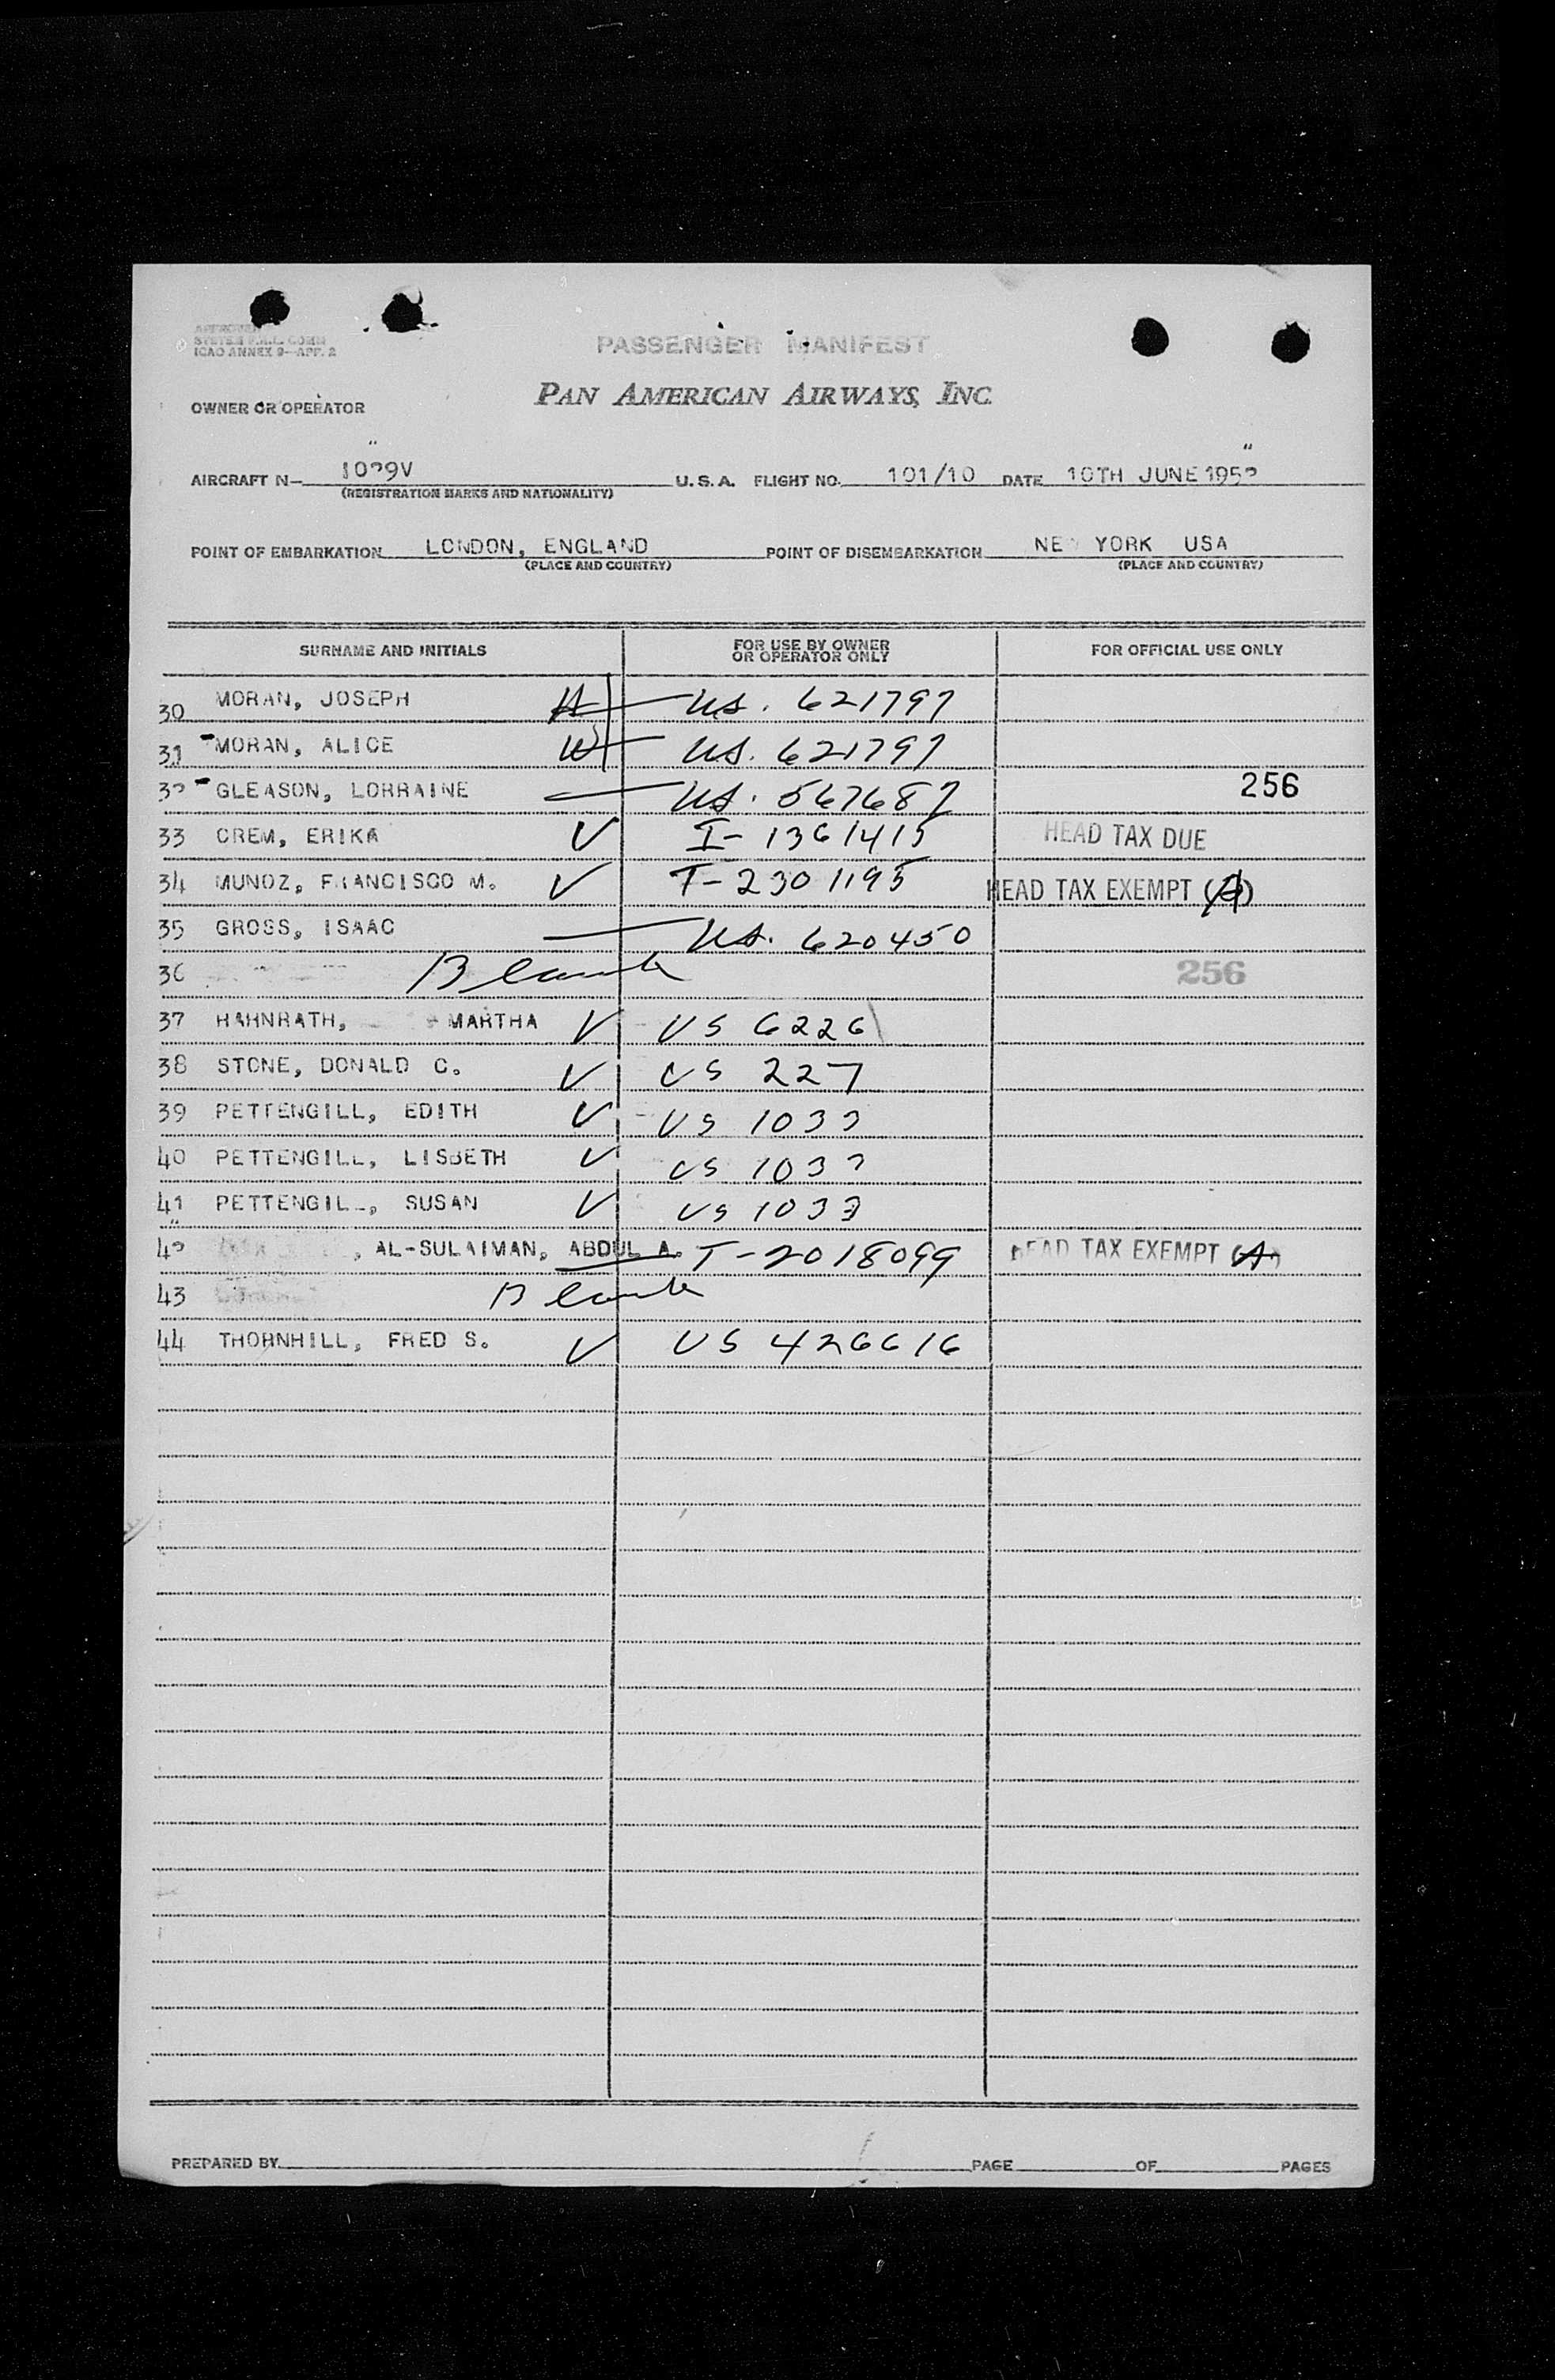 APPROVED
SYSTEM F.H.L. COMM
ICAO ANNEX 9—APP. 2
PASSENGER MANIFEST
PAN AMERICAN AIRWAYS, INC.
OWNER OR OPERATOR
AIRCRAFT N— 1029V U.S.A. FLIGHT NO. 101/10 DATE 10TH JUNE 1952
(REGISTRATION MARKS AND NATIONALITY)
POINT OF EMBARKATION LONDON, ENGLAND POINT OF DISEMBARKATION NE YORK USA
(PLACE AND COUNTRY) (PLACE AND COUNTRY)
SURNAME AND INITIALS FOR USE BY OWNER OR OPERATOR ONLY FOR OFFICIAL USE ONLY
30 MORAN, JOSEPH H US. 621797
31 MORAN, ALICE W US. 621797
32 GLEASON, LORRAINE US. 567687 256
33 CREM, ERIKA I-1361415 HEAD TAX DUE
34 MUNOZ, FRANCISCO M. T-2301195 HEAD TAX EXEMPT (A)
35 GROSS, ISAAC US. 620450
36 Blank 256
37 HAHNRATH, MARTHA US 6226
38 STONE, DONALD C. US 227
39 PETTENGILL, EDITH US 1033
40 PETTENGILL, LISBETH US 1033
41 PETTENGILL, SUSAN US 1033
42 , AL-SULAIMAN, ABDUL A. T-2018099 HEAD TAX EXEMPT (A)
43 Blank
44 THORNHILL, FRED S. US 426616
PREPARED BY PAGE OF PAGES